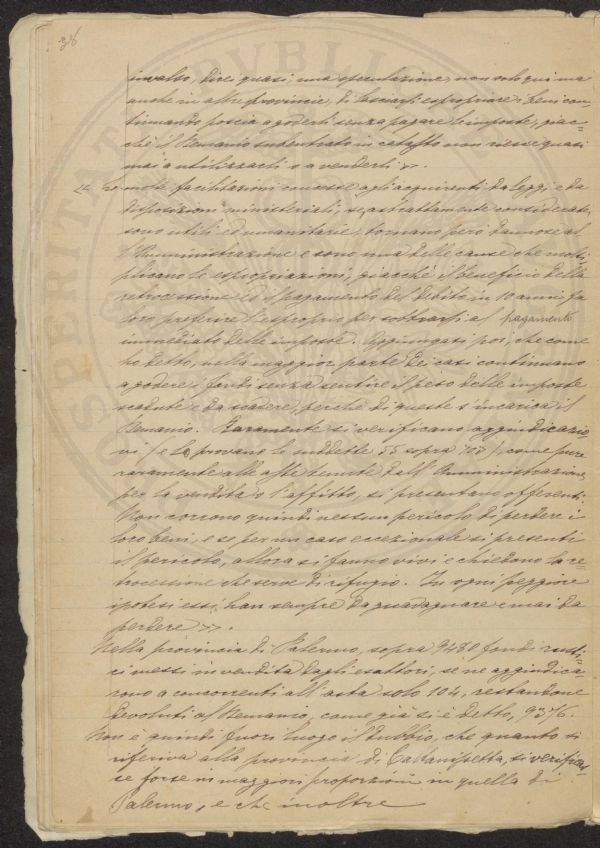 38
invalso, direi quasi, una speculazione, non solo qui ma
anche in altre provincie, di lasciarsi espropriare i beni con=
tinuando poscia a goderli senza pagare le imposte, giac=
chè il Demanio subentrato in catasto non riesce quasi
mai a utilizzarli o a venderli ».
« Le molte facilitazioni concesse agli acquirenti da leggi e da
disposizioni ministeriali, se astrattamente considerate,
sono utili ed umanitarie, tornano però dannose al=
l'Amministrazione e sono una delle cause che molti=
plicano le espropriazioni, giacchè il beneficio della
retrocessione ed il pagamento del debito in 10 anni fa
loro preferire l'esproprio per sottrarsi al pagamento
immediato delle imposte. Aggiungasi poi, che come
ho detto, nella maggior parte dei casi continuano
a godere i fondi senza sentire il peso delle imposte
scadute e da scadere, perchè di queste s'incarica il
Demanio. Raramente si verificano aggiudicazio
ni (e lo provano le suddette 55 sopra 707), come pure
raramente alle aste tenute dall'Amministrazione
per la vendita o l'affitto, si presentano offerenti.
Non corrono quindi nessun pericolo di perdere i
loro beni, e se per un caso eccezionale si presenti
il pericolo, allora si fanno vivi e chiedono la re=
trocessione che serve di rifugio. In ogni peggiore
ipotesi essi han sempre da guadagnare e mai da
perdere ».
Nella provincia di Palermo, sopra 9480 fondi rusti=
ci messi in vendita dagli esattori, se ne aggiudica=
rono a concorrenti all'asta solo 104, restandone
devoluti al Demanio, come già si è detto, 9376.
Non è quindi fuori luogo il dubbio, che quanto si
riferiva alla provincia di Caltanissetta, si verificas=
se forse in maggiori proporzioni in quella di
Palermo, e che inoltre